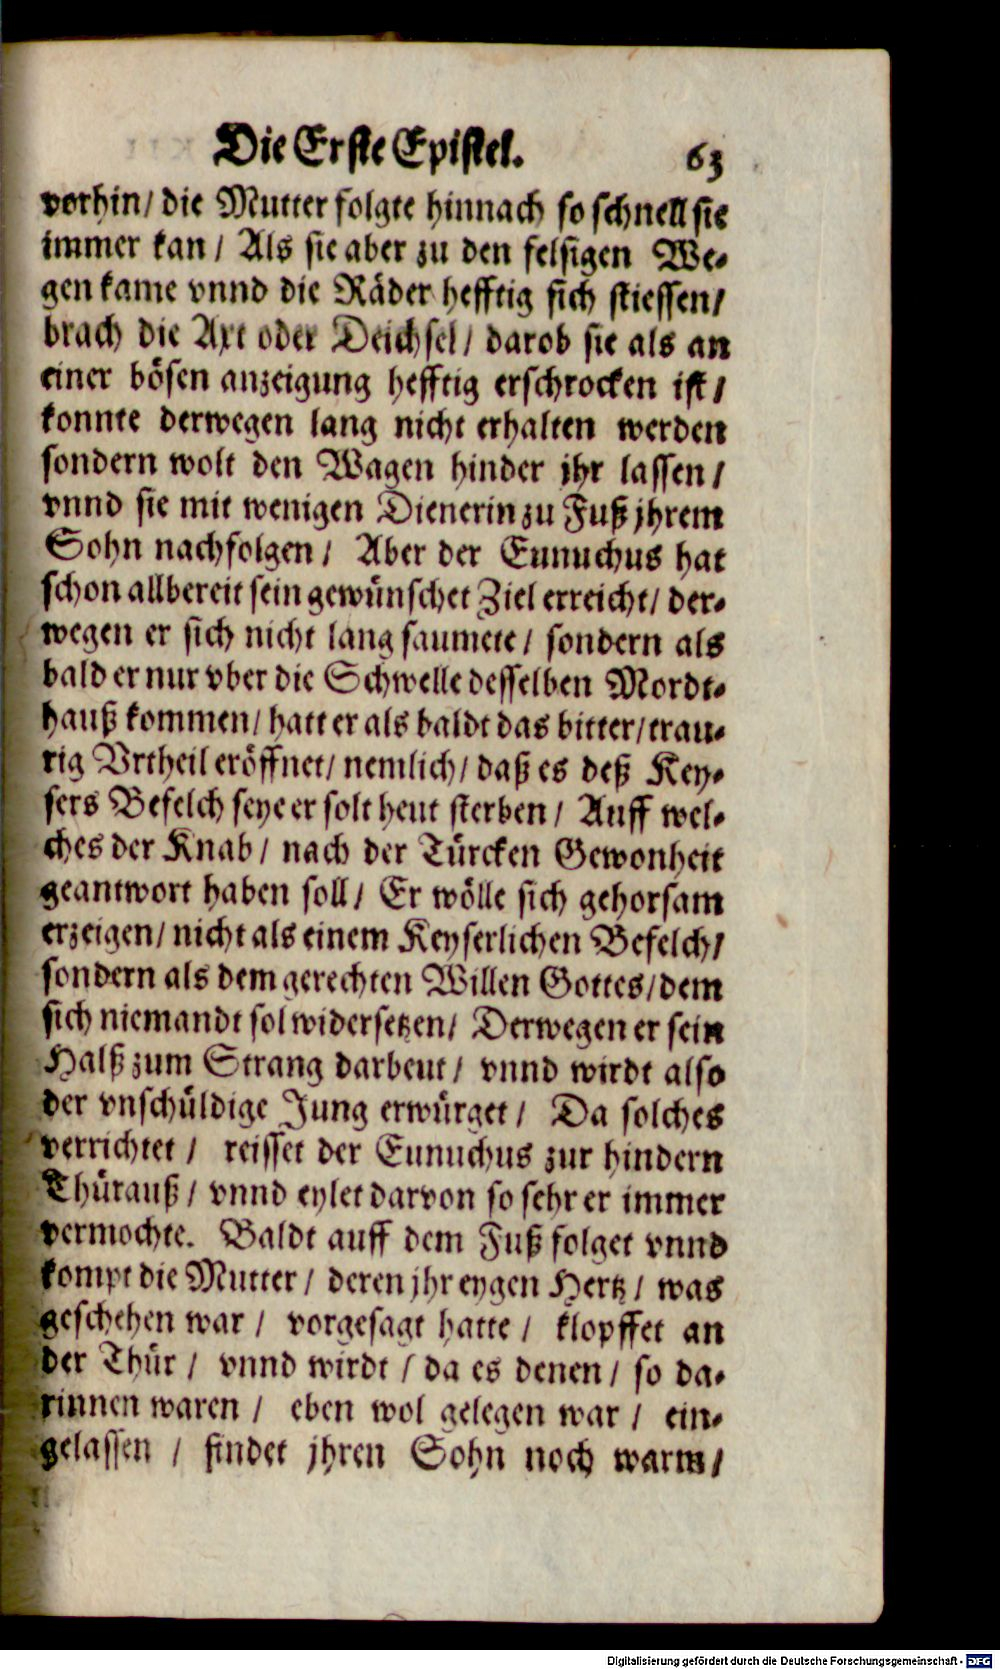 Die Erste Epistel. 63
vorhin/ die Mutter folgte hinnach so schnell sie
immer kan/ Als sie aber zu den felsigen We-
gen kame vnnd die Räder hefftig sich stiessen/
brach die Axt oder Deichsel/ darob sie als an
einer bösen anzeigung hefftig erschrocken ist/
konnte derwegen lang nicht erhalten werden
sondern wolt den Wagen hinder jhr lassen/
vnnd sie mit wenigen Dienerin zu Fuß jhrem
Sohn nachfolgen/ Aber der Eunuchus hat
schon allbereit sein gewünschet Ziel erreicht/ der-
wegen er sich nicht lang saumete/ sondern als
bald er nur vber die Schwelle desselben Mordt-
hauß kommen/ hatt er als baldt das bitter/ trau-
rig Vrtheil eröffnet/ nemlich/ daß es deß Key-
sers Befelch seye er solt heut sterben/ Auff wel-
ches der Knab/ nach der Türcken Gewonheit
geantwort haben soll/ Er wölle sich gehorsam
erzeigen/ nicht als einem Keyserlichen Befelch/
sondern als dem gerechten Willen Gottes/ dem
sich niemandt sol widersetzen/ Derwegen er sein
Halß zum Strang darbeut/ vnnd wirdt also
der vnschüldige Jung erwürget/ Da solches
verrichtet/ reisset der Eunuchus zur hindern
Thür auß/ vnnd eylet darvon so sehr er immer
vermochte. Baldt auff dem Fuß folget vnnd
kompt die Mutter/ deren jhr eygen Hertz/ was
geschehen war/ vorgesagt hatte/ klopffet an
der Thür/ vnnd wirdt/ da es denen/ so da-
rinnen waren/ eben wol gelegen war/ ein-
gelassen/ findet jhren Sohn noch warm/
Digitalisierung gefördert durch die Deutsche Forschungsgemeinschaft - DFG